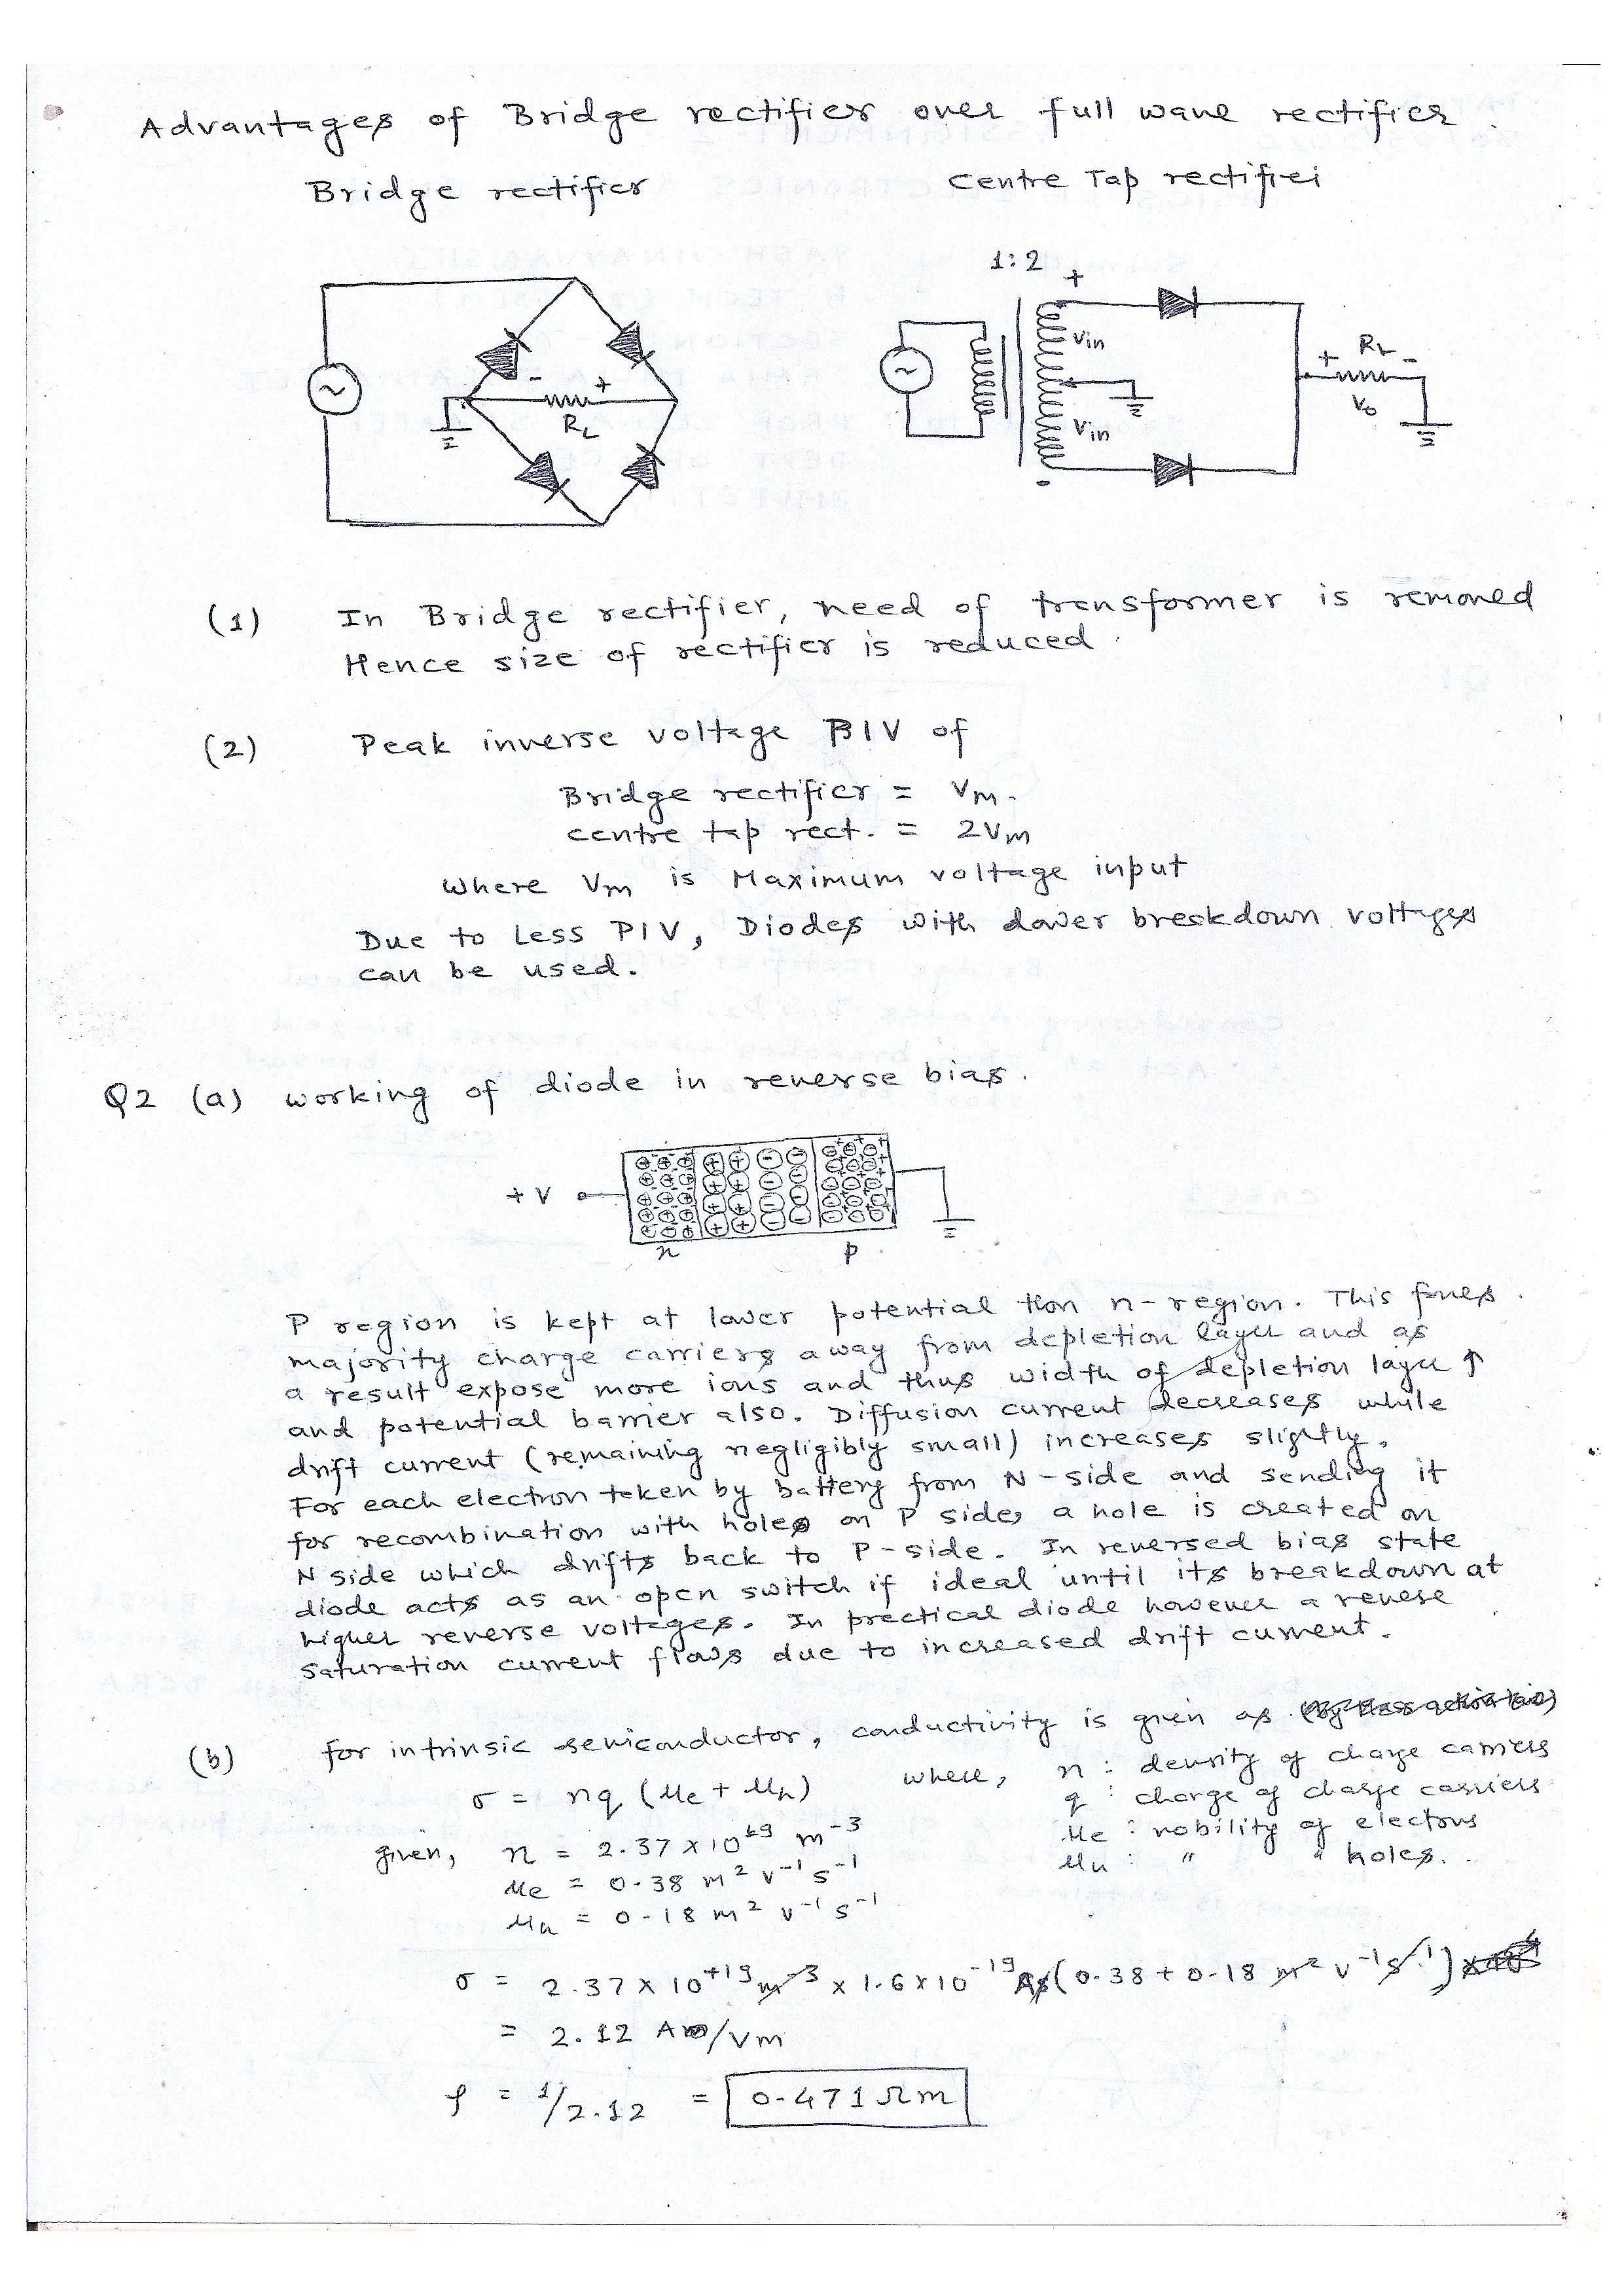 Advantages of Bridge rectifier over full wave rectifier.
Bridge rectifier
Centre Tap rectifier
1:2
+
Vin
Vin
-
~
- +
RL
~
+ RL -
Vo
(1) In Bridge rectifier, need of transformer is removed
Hence size of rectifier is reduced.
(2) Peak inverse voltage PIV of
Bridge rectifier = Vm.
centre tap rect. = 2Vm
where Vm is Maximum voltage input
Due to Less PIV, Diodes with lower breakdown voltages
can be used.
Q2 (a) working of diode in reverse bias.
+V
n p
P region is kept at lower potential than n-region. This forces
majority charge carriers away from depletion layer and as
a result expose more ions and thus width of depletion layer ↑
and potential barrier also. Diffusion current decreases while
drift current (remaining negligibly small) increases slightly.
For each electron taken by battery from N-side and sending it
for recombination with holes on P side, a hole is created on
N side which drifts back to P-side. In reversed bias state
diode acts as an open switch if ideal until its breakdown at
higher reverse voltages. In practical diode however a revese
saturation current flows due to increased drift current.
(b) for intrinsic semiconductor, conductivity is given as
σ = nq (μe + μh) where, n : density of charge carriers
q : charge of charge carriers
given, n = 2.37 x 10^19 m^-3 μe : mobility of electrons
μe = 0.38 m² v^-1 s^-1 μh : " " holes.
μh = 0.18 m² v^-1 s^-1
σ = 2.37 x 10^+19 m^-3 x 1.6 x 10^-19 As (0.38 + 0.18 m² v^-1 s^-1)
= 2.12 A/Vm
ρ = 1/2.12 = 0.471 Ωm